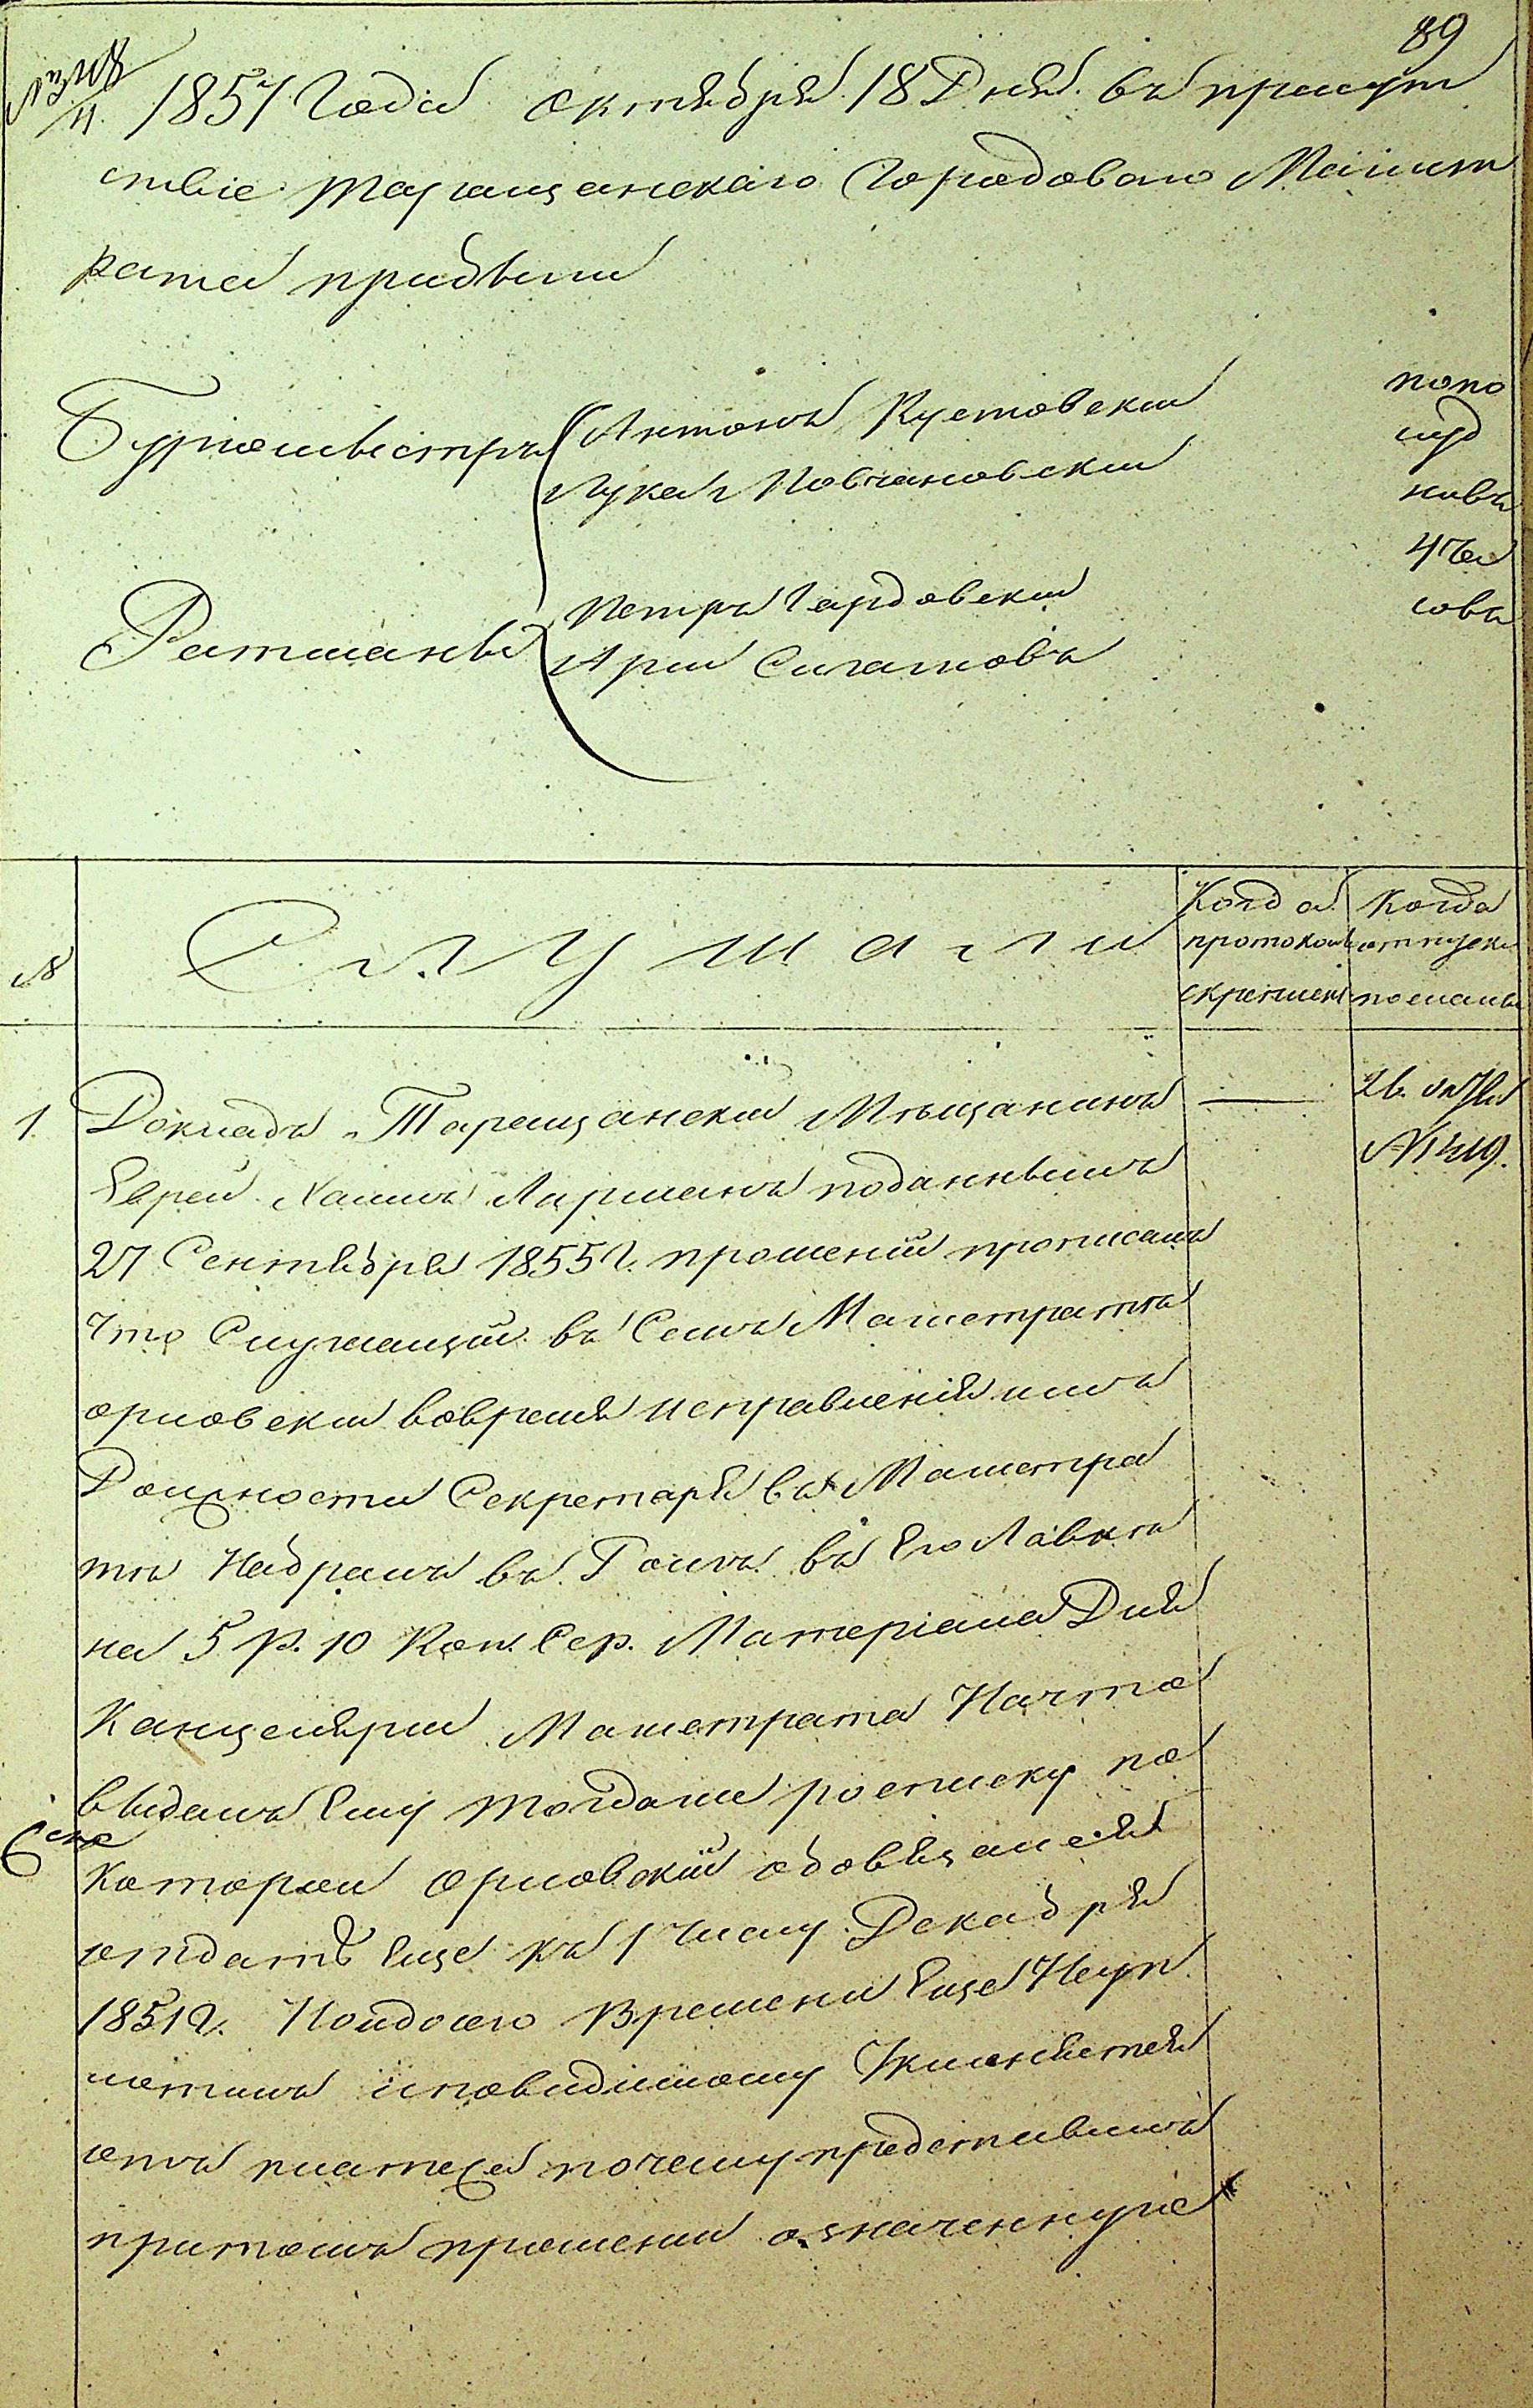 89
1857 Года октября 18 Дня въ присут
ствіе Таращанскаго Городоваго Магист
рата прибыли
Бургомистръ
Антонъ Кустовскій
Лука Повчановскій
Ратманы
Петръ Гардовскій
Арій Сигаловъ
попо
луд
ни въ
4 ча
совъ
№
Слушали
Когда протоколъ скрепленъ
Когда отпуски посланы
1
Докладъ. Таращанскій Мѣщанинъ
Еврей Хаимъ Лирманъ поданнымъ
27 Сентября 1855 г. прошеній прописалъ
Что Служащій въ Семъ Магистратѣ
орловскій вовремя исправленія имъ
Должности Секретаря въ Магистра
тѣ Набралъ въ Долгъ въ Его Лавкѣ
на 5 р. 10 Коп. Сер. Матеріала Для
Канцеляріи Магистрата Начто
выдалъ Ему тогдаже росписку по
которой орловскій обовязался
отдать Еще къ 1 Числу Декабря
1851 г. Нойдосего Времени Еще Неуп
лотилъ иповидимому Уклоняется
отъ платежа почему предстививъ
притомъ прошеніи означенную
26. октбр
№ 1419.